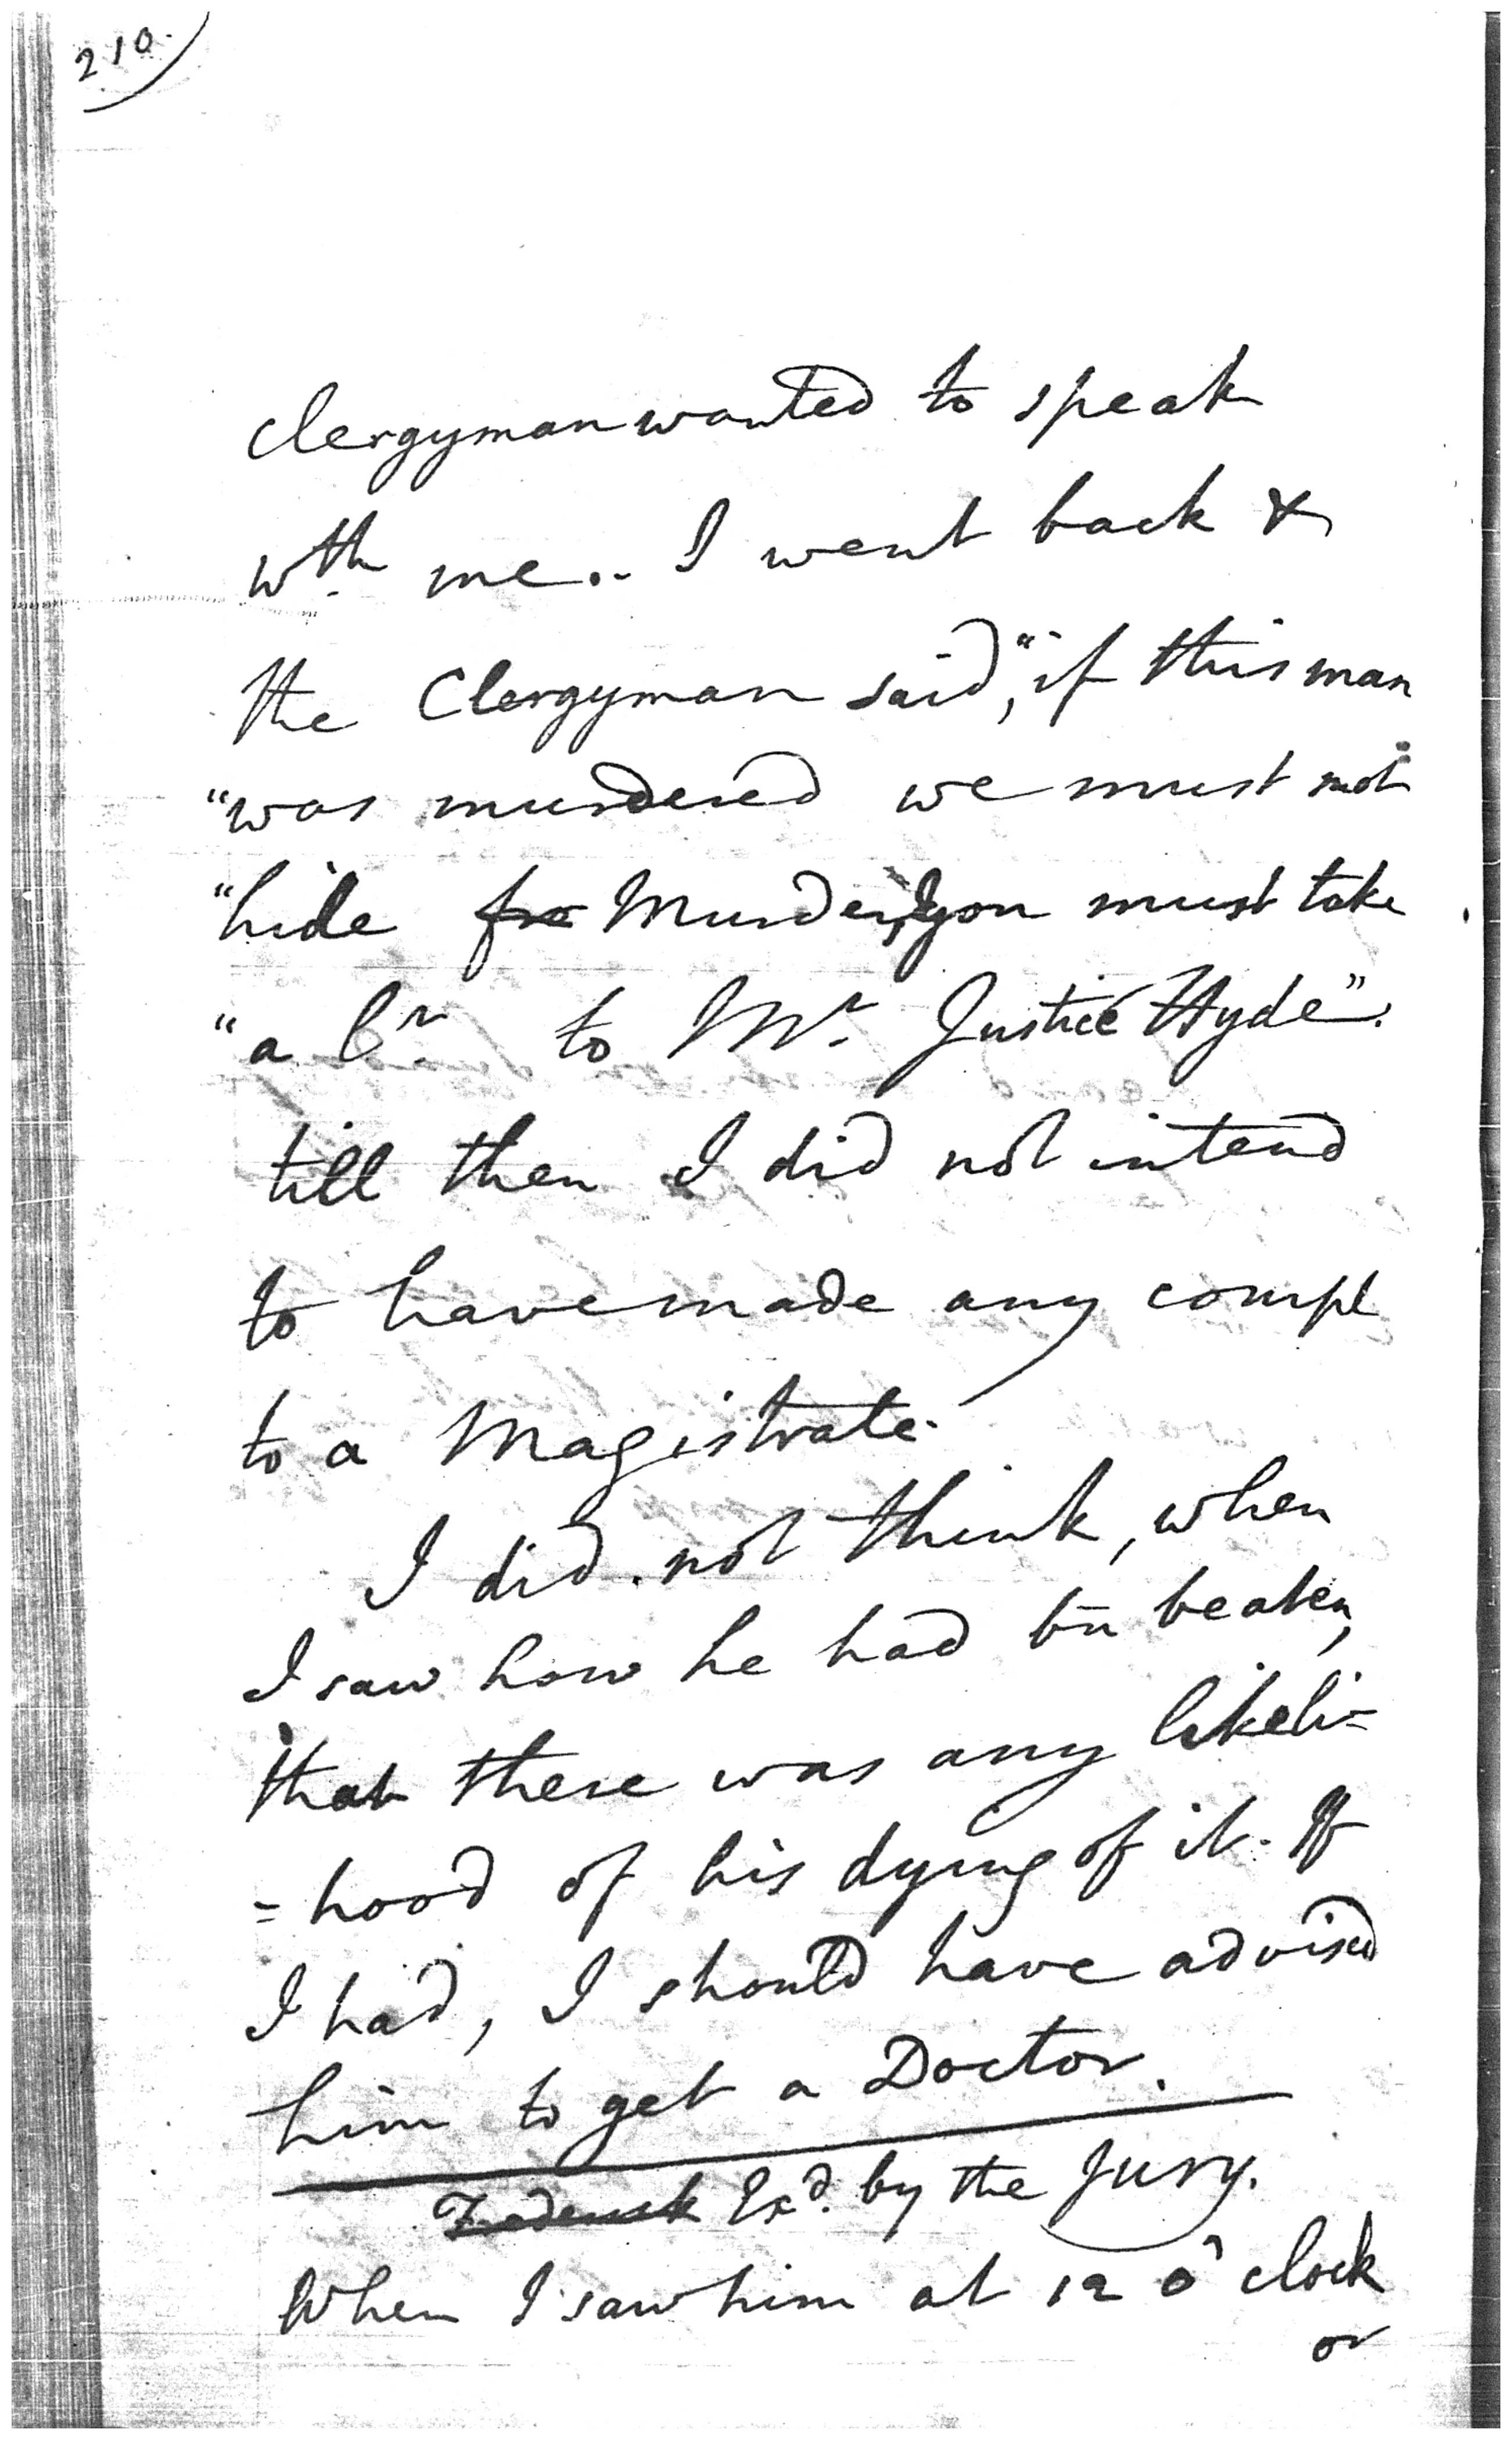 210.
Clergyman wanted to speak
wth. me.. I went back &
the Clergyman said, "if this man
"was murdered we must not
"hide Murder, you must take
"a lr. to Mr. Justice Hyde".
till then I did not intend
to have made any compl
to a Magistrate.
I did not think, when
I saw how he had bn beaten,
that there was any likeli=
=hood of his dying of it. If
I had, I should have advised
him to get a Doctor.
Frederick Exd. by the Jury.
When I saw him at 12 o'clock
or